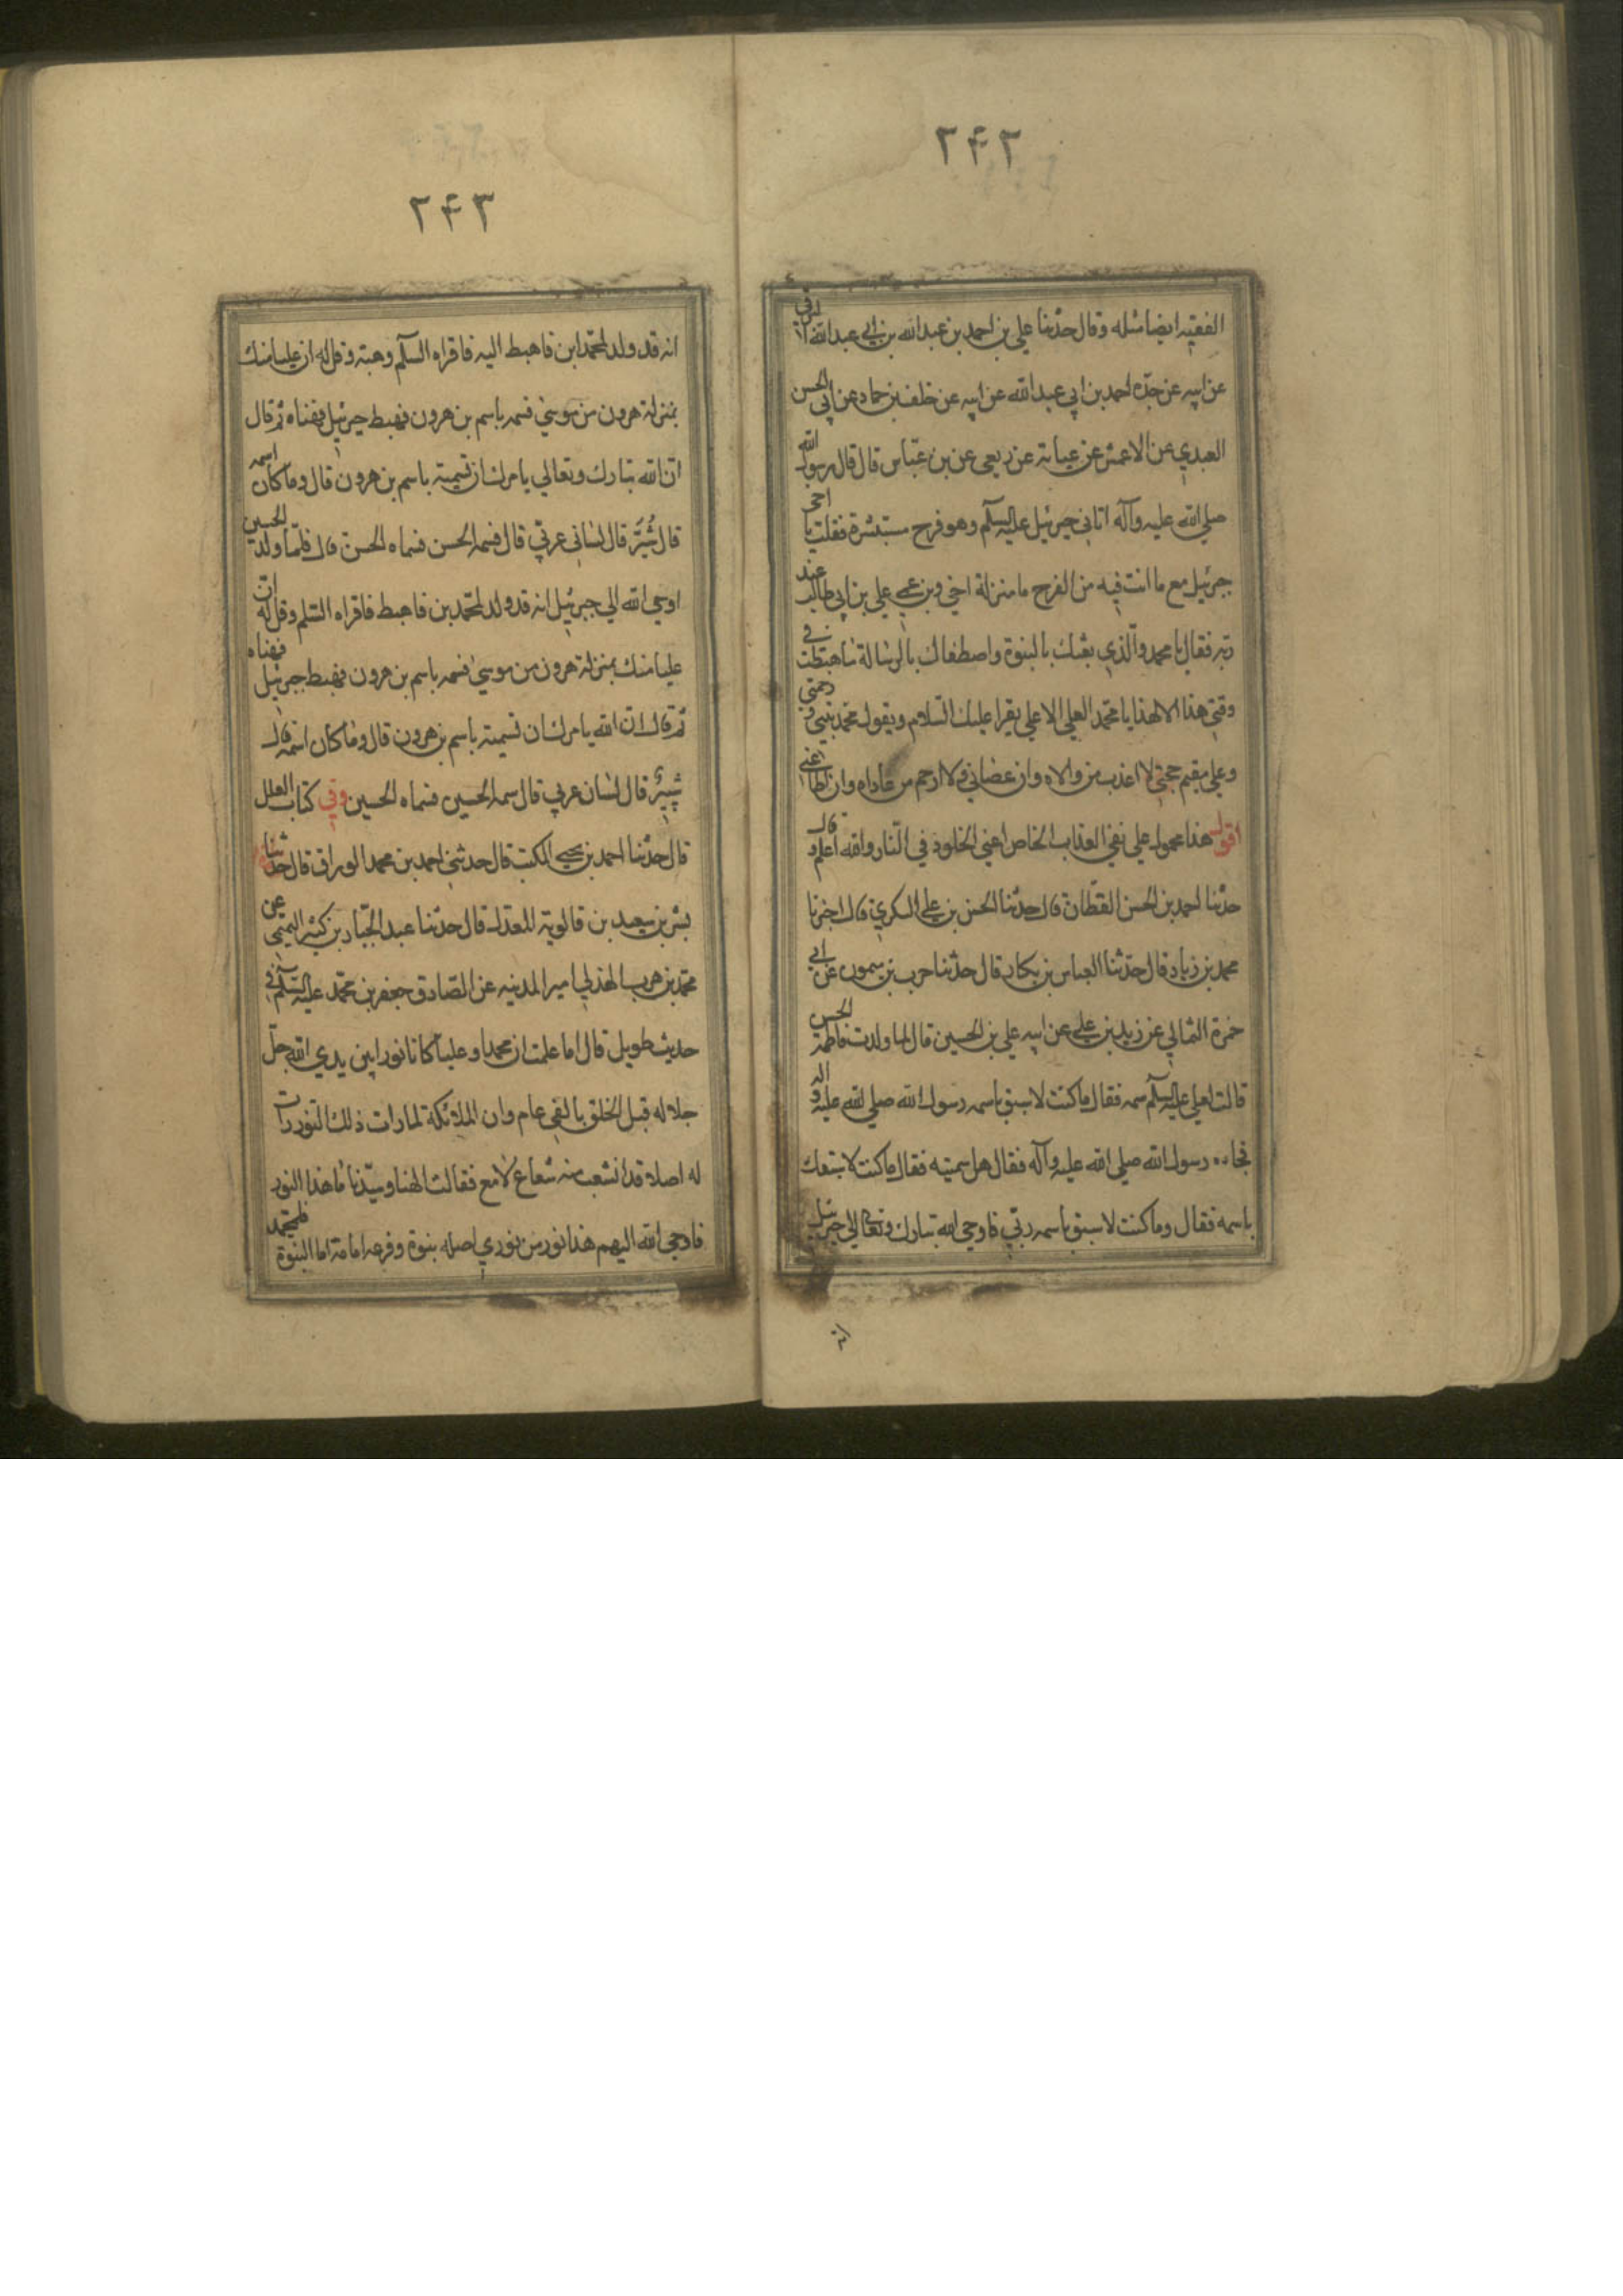 ۲۴۲
الفقيه ايضا مثله وقال حدثنا علي بن احمد بن عبدالله بن ابي عبدالله البرقي
عن ابيه عن جده احمد بن ابي عبد الله عن ابيه عن خلف بن حماد عن ابي الحسن
العبدي عن الاعمش عن عباية عن ربعي عن بن عباس قال قال رسول الله
صلي الله عليه وآله اتاني جبرئيل عليه السلم وهو فرح مستبشرة فقلت يا اخي
جبرئيل مع ما انت فيه من الفرح ما منزلة اخي وبن عمي علي بن ابي طالب عند
ربه فقال يا محمد والذي بعثك بالبنوة واصطفاك بالرسالة ما هبطت في
وقتي هذا الا لهذا يا محمد العلي الاعلي يقرا عليك السلام ويقول محمد بنيي ورحمتي
وعلي مقيم حجتي لا اعذب من والاه وان عصاني ولا ارحم من عاداه وان اطاعني
اقول هذا محمول علي نفي العذاب الخاص اعني الخلود في النار والله اعلم وقال
حدثنا احمد بن الحسن القطان قال حدثنا الحسن بن علي السكري قال اخبرنا
محمد بن زياد قال حدثنا العباس بن بكار قال حدثنا حرب بن ميمون عن ابي
حمزة الثمالي عن زيد بن علي عن ابيه علي بن الحسين قال لما ولدت فاطمة الحسن
قالت لعلي عليه السلم سمه فقال ما كنت لاسبق باسمه رسول الله صلي الله عليه واله
فجاءه رسول الله صلي الله عليه وآله فقال هل سميته فقال ما كنت لاسبقك
باسمه فقال وما كنت لاسبق باسمه ربي فاوحي الله تبارك وتعالي الي جبرئيل
انه
۲۴۳
انه قد ولد لمحمد ابن فاهبط اليه فاقراه السلم وهنه وقل له ان عليا منك
بمنزلة هرون من موسي فسمه باسم بن هرون فهبط جبرئيل فهناه ثم قال
ان الله تبارك وتعالي يامرك ان تسميه باسم بن هرون قال وما كان اسمه
قال شبر قال لساني عربي قال فسمه الحسن فسماه الحسن قال فلما ولد الحسين
اوحي الله الي جبرئيل انه قد ولد لمحمد بن فاهبط فاقراه السلم وقل له ان
عليا منك بمنزلة هرون من موسي فسمه باسم بن هرون فهبط جبرئيل فهناه
ثم قال ان الله يامرك ان تسميه باسم بن هرون قال وما كان اسمه قال
شبير قال لسان عربي قال سمه الحسين فسماه الحسين وفي كتاب العلل
قال حدثنا احمد بن يحيي المكتب قال حدثني احمد بن محمد الوراق قال حدثنا
بشر بن سعيد بن قالويه المعدل قال حدثنا عبد الجبار بن كثير التميمي عن
محمد بن حرب الهذلي امير المدينه عن الصادق جعفر بن محمد عليه السلم في
حديث طويل قال اما علمت ان محمدا وعليا كانا نورا بين يدي الله جل
جلاله قبل الخلق بالفي عام وان الملائكة لما رات ذلك النور رات
له اصلا قد انشعب منه شعاع لامع فقالت الهنا وسيدنا ما هذا النور
فاوحي الله اليهم هذا نور من نوري اصله بنوة وفرعه امامة اما البنوة فلمحمد